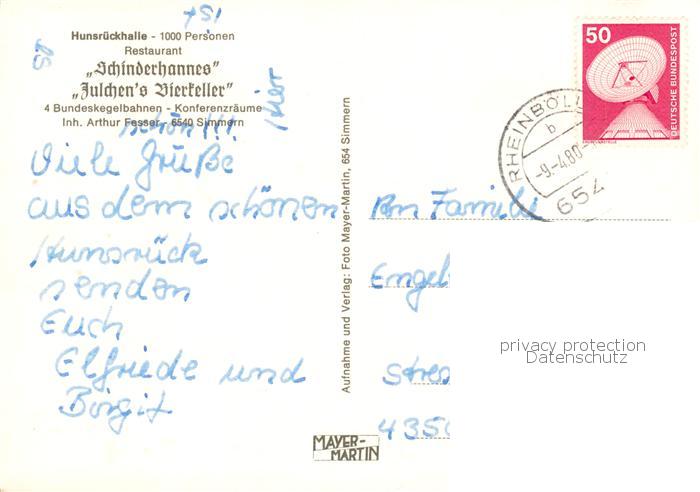 Hunsrückhalle - 1000 Personen
Restaurant
„Schinderhannes"
„Julchen's Bierkeller"
4 Bundeskegelbahnen - Konferenzräume
Inh. Arthur Fesser - 6540 Simmern
Es
ist
hier
schön!!!
Viele Grüße
aus dem schönen
Hunsrück
senden
Euch
Elfriede und
Birgit
Aufnahme und Verlag: Foto Mayer-Martin, 654 Simmern
MAYER-
MARTIN
50
DEUTSCHE BUNDESPOST
RHEINBÖLL
b
-9.-4.80-
654
An Familie
Engel
Stres
4350
privacy protection
Datenschutz